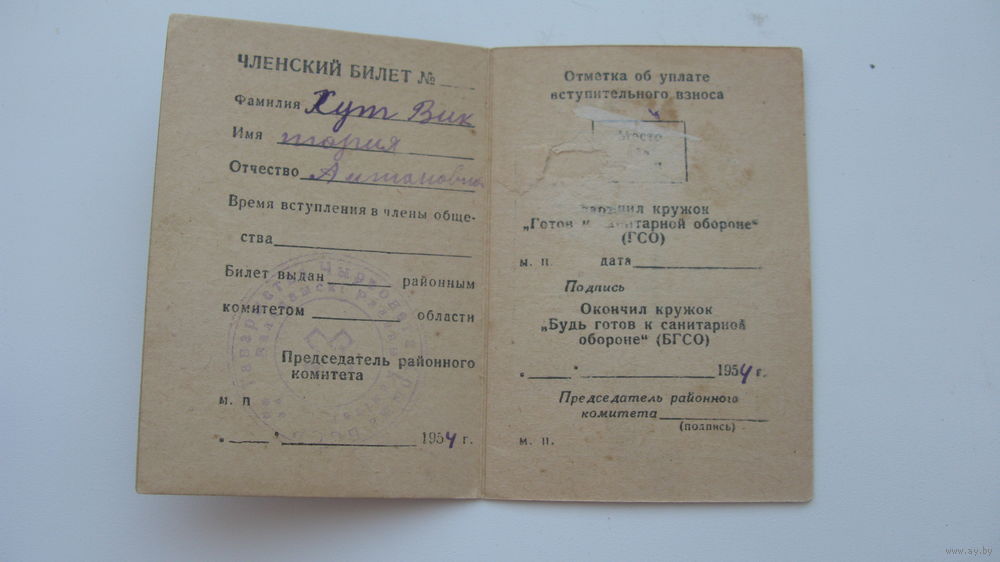 ЧЛЕНСКИЙ БИЛЕТ №
Фамилия Хут Вик
Имя тория
Отчество Антоновна
Время вступления в члены обще-
ства
Билет выдан районным
комитетом области
Председатель районного
комитета
м. п
1954 г.
Отметка об уплате
вступительного взноса
Место
кружок
„Готов к санитарной обороне“
(ГСО)
м. п. дата
Подпись
Окончил кружок
„Будь готов к санитарной
обороне“ (БГСО)
1954 г.
Председатель районного
комитета
(подпись)
м. п.
www.ay.by